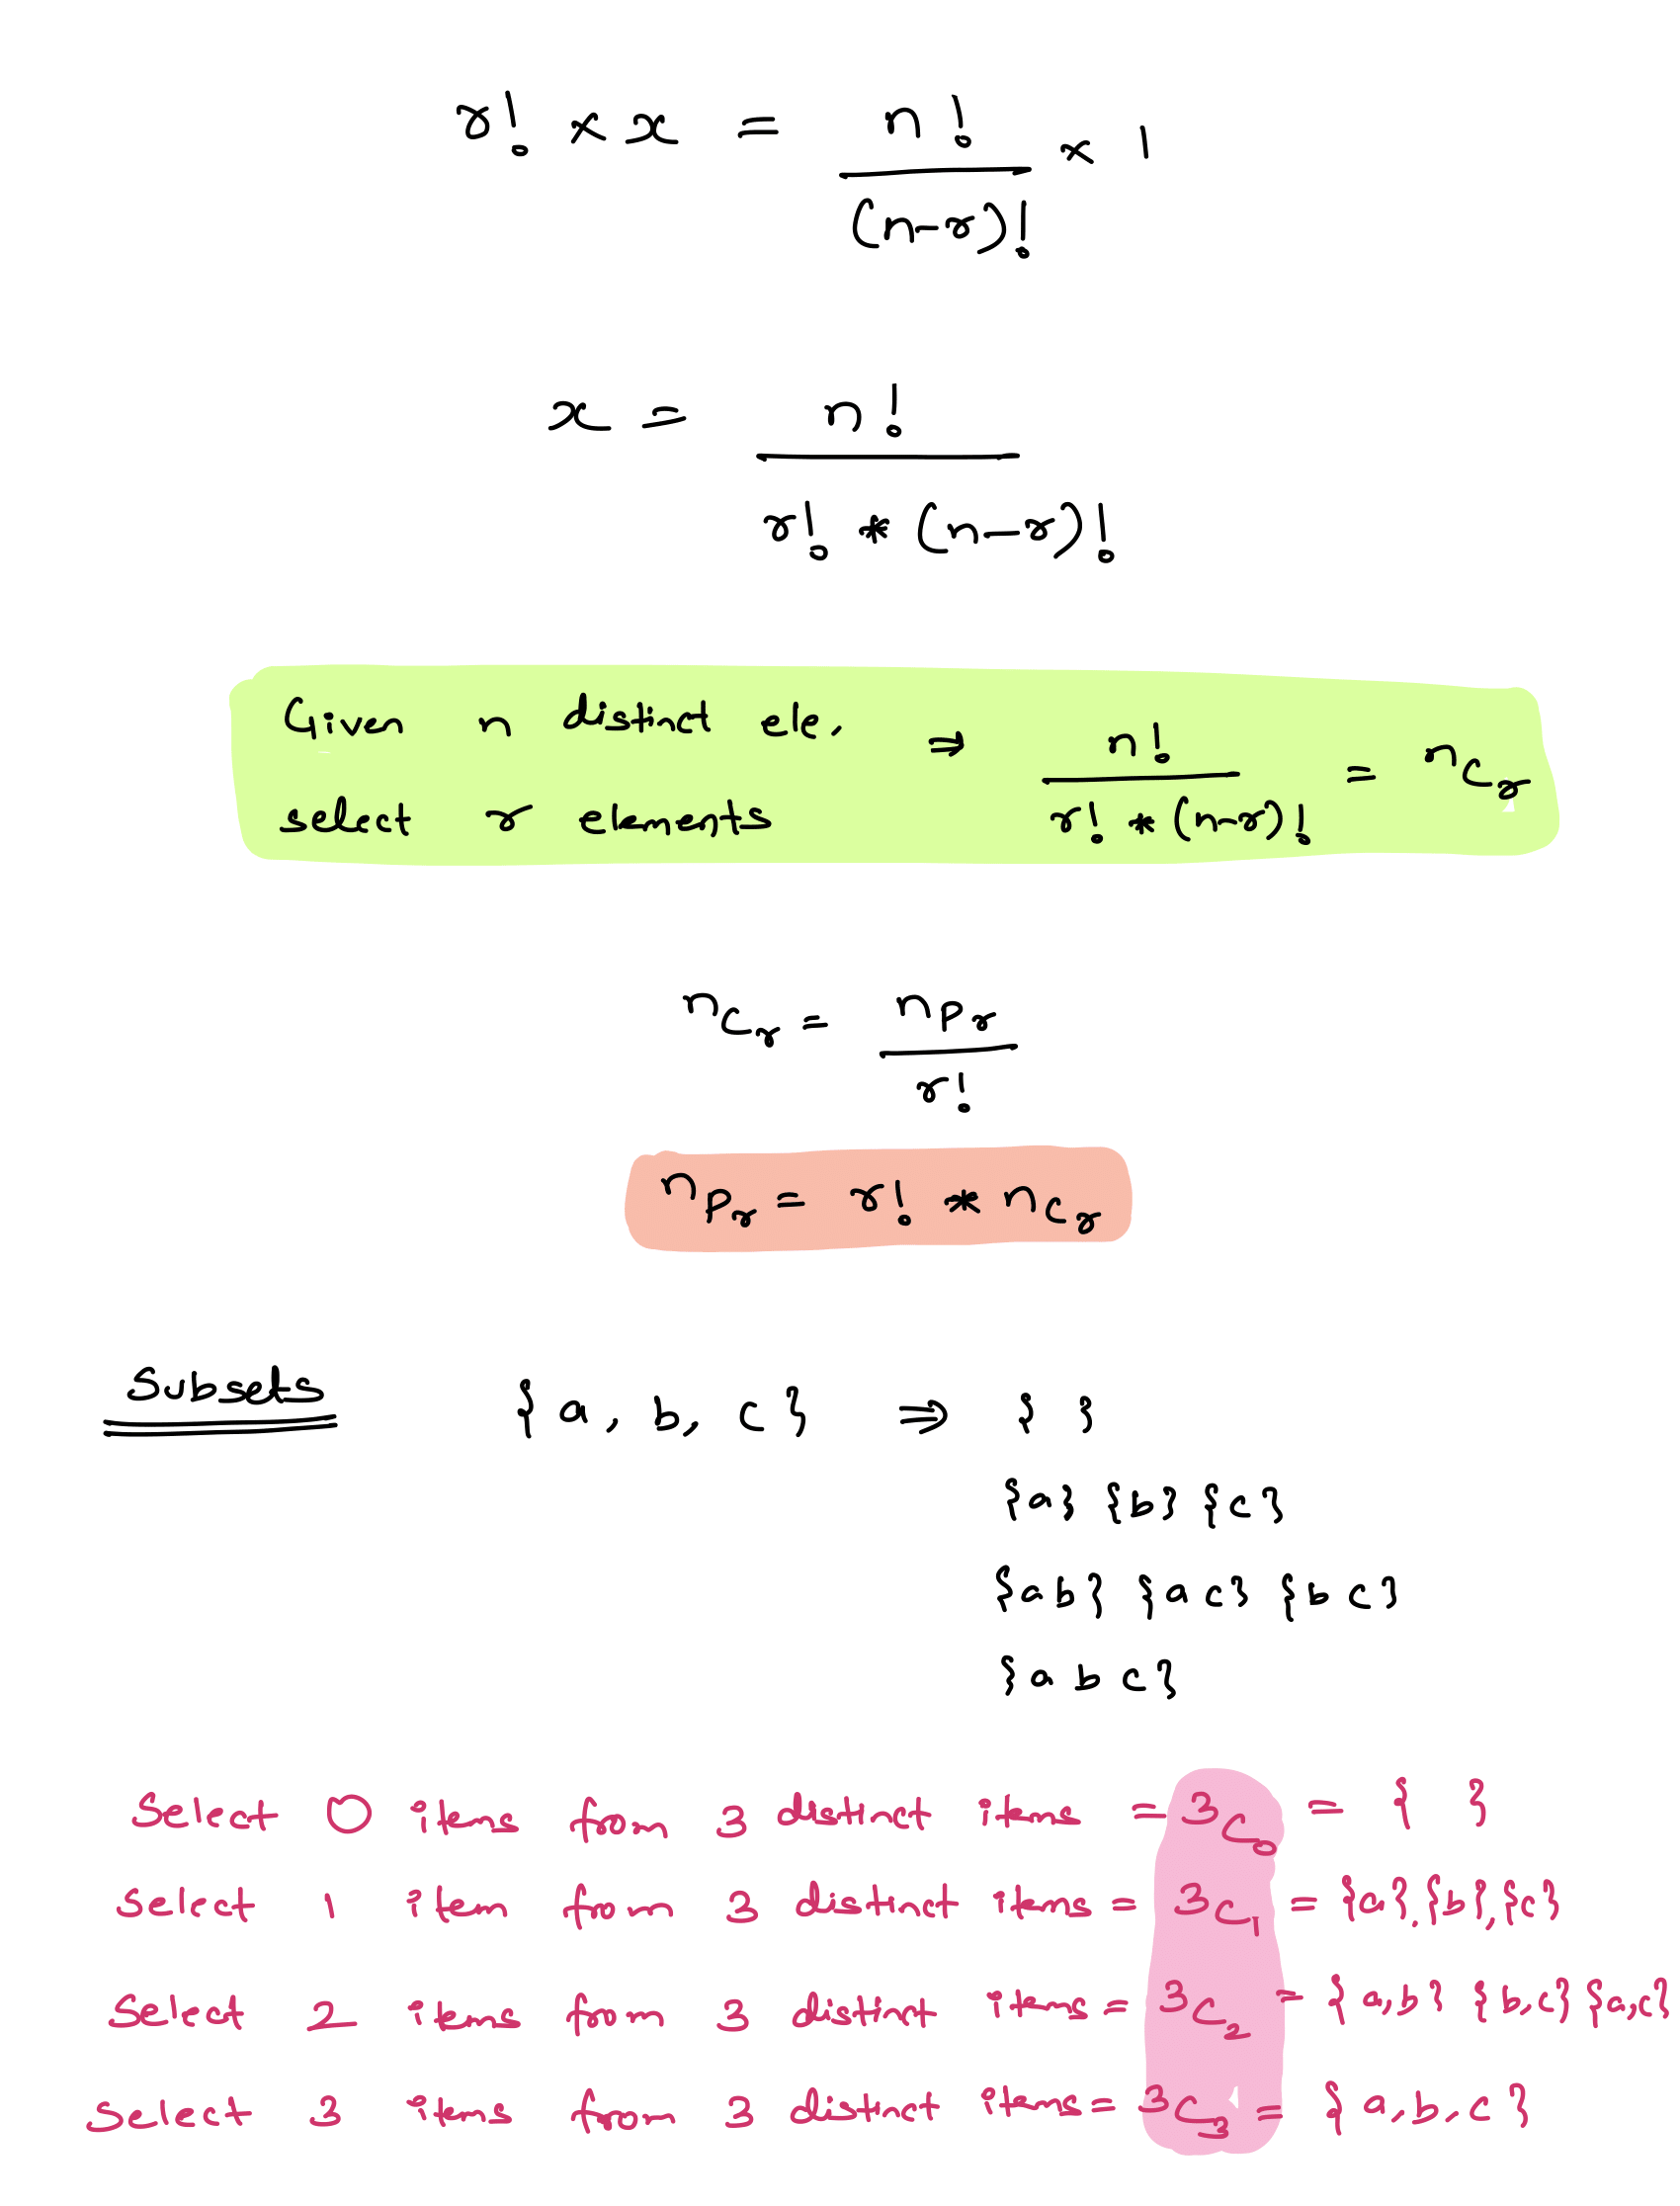 r! × x = n! / (n-r)! × 1
x = n! / r! * (n-r)!
Given n distinct ele. ⇒ n! / r! * (n-r)! = nCr
select r elements
nCr = nPr / r!
nPr = r! * nCr
Subsets {a, b, c} ⇒ { }
{a} {b} {c}
{ab} {ac} {bc}
{abc}
Select 0 items from 3 distinct items = 3C0 = { }
Select 1 item from 3 distinct items = 3C1 = {a}, {b}, {c}
Select 2 items from 3 distinct items = 3C2 = {a,b} {b,c} {a,c}
Select 3 items from 3 distinct items = 3C3 = {a,b,c}